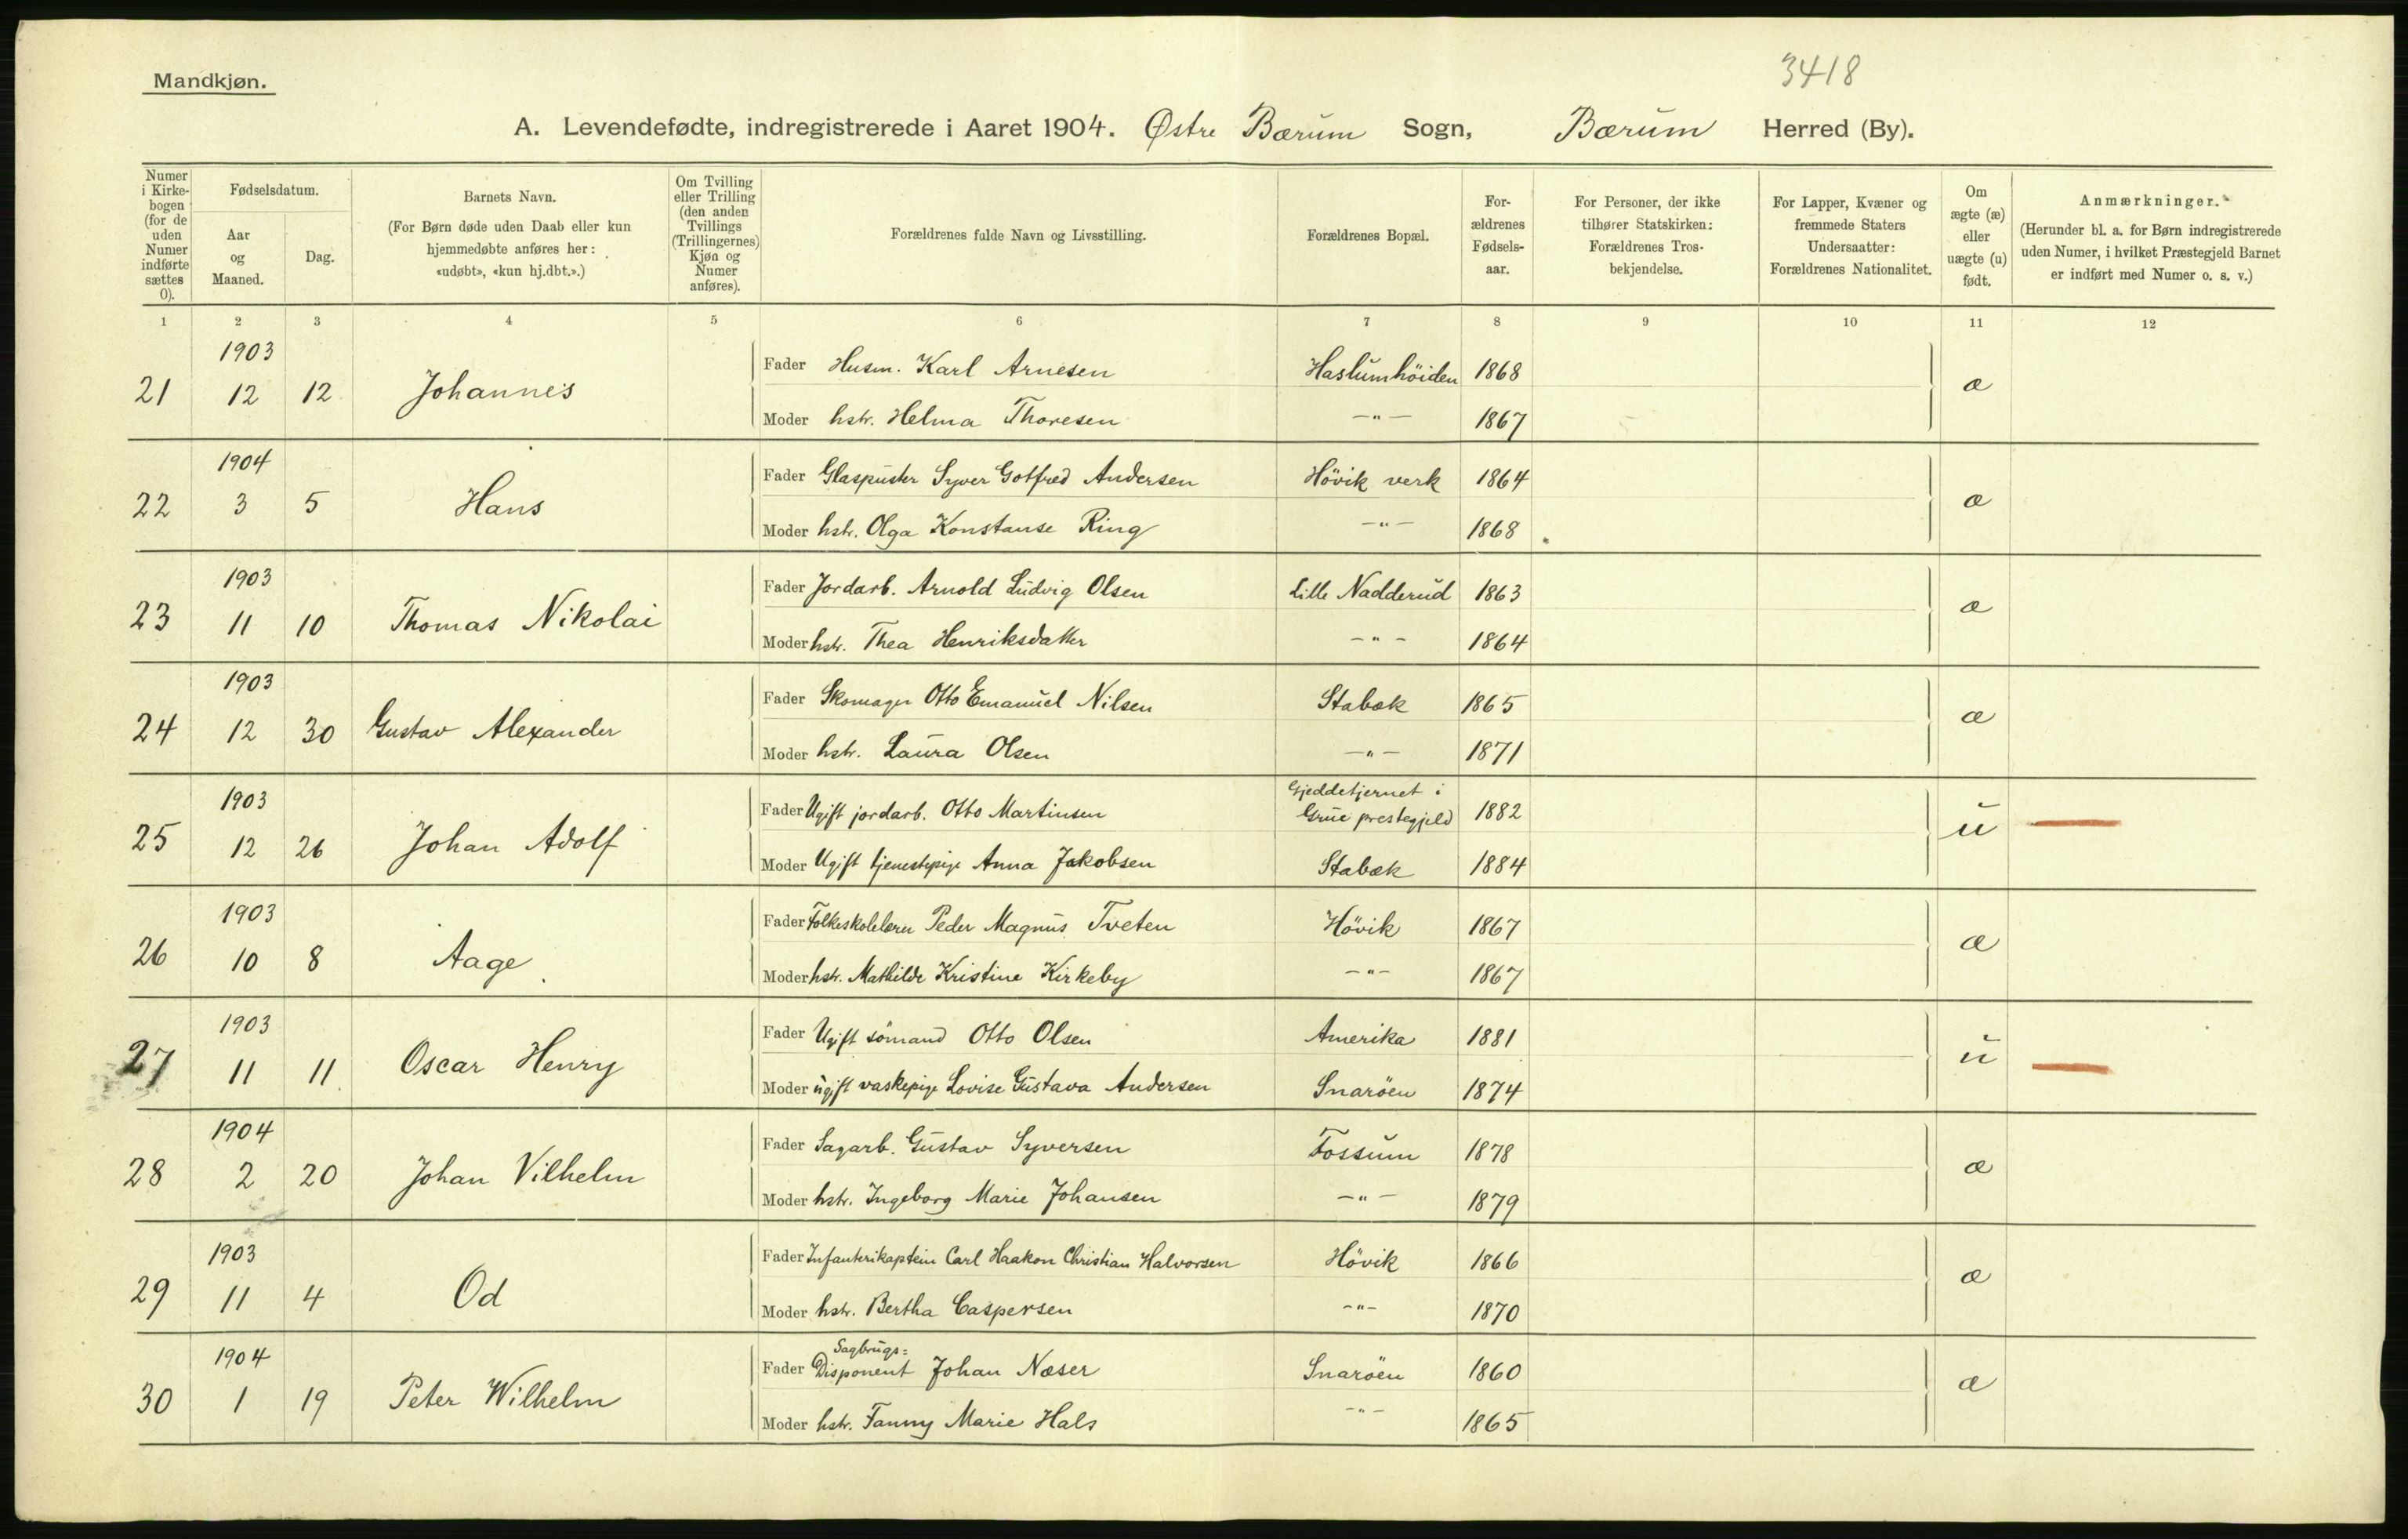 3418
Mandkjøn.
A. Levendefødte, indregistrerede i Aaret 1904. Østre Bærum Sogn, Bærum Herred (By).
Numer i Kirkebogen (for de uden Numer indførte sættes 0).
Fødselsdatum.
Aar og Maaned.
Dag.
Barnets Navn.
(For Børn døde uden Daab eller kun hjemmedøbte anføres her: «udøbt», «kun hj.dbt.».)
Om Tvilling eller Trilling (den anden Tvillings (Trillingernes) Kjøn og Numer anføres).
Forældrenes fulde Navn og Livsstilling.
Forældrenes Bopæl.
Forældrenes Fødselsaar.
For Personer, der ikke tilhører Statskirken: Forældrenes Trosbekjendelse.
For Lapper, Kvæner og fremmede Staters Undersaatter: Forældrenes Nationalitet.
Om ægte (æ) eller uægte (u) født.
Anmærkninger.
(Herunder bl. a. for Børn indregistrerede uden Numer, i hvilket Præstegjeld Barnet er indført med Numer o. s. v.)
1 2 3 4 5 6 7 8 9 10 11 12
1903
21 12 12 Johannes
Fader Husm. Karl Arnesen Haslumhöiden 1868
æ
Moder hstr. Helma Thoresen —"— 1867
1904
22 3 5 Hans
Fader Glaspuster Syver Gotfred Andersen Hövik verk 1864
æ
Moder hstr. Olga Konstanse Ring —"— 1868
1903
23 11 10 Thomas Nikolai
Fader Jordarb. Arnold Ludvig Olsen Lille Nadderud 1863
æ
Moder hstr. Thea Henriksdatter —"— 1864
1903
24 12 30 Gustav Alexander
Fader Skomager Otto Emanuel Nilsen Stabæk 1865
æ
Moder hstr. Laura Olsen —"— 1871
1903
25 12 26 Johan Adolf
Fader Ugift jordarb. Otto Martinsen Gjeddetjernet i Grue prestegjeld 1882
u
Moder Ugift tjenestepige Anna Jakobsen Stabæk 1884
1903
26 10 8 Aage
Fader Folkeskolelærer Peder Magnus Tveten Hövik 1867
æ
Moder hstr. Mathilde Kristine Kirkeby —"— 1867
1903
27 11 11 Oscar Henry
Fader Ugift sömand Otto Olsen Amerika 1881
u
Moder ugift vaskepige Lovise Gustava Andersen Snaröen 1874
1904
28 2 20 Johan Vilhelm
Fader Sagarb. Gustav Syversen Fossum 1878
æ
Moder hstr. Ingeborg Marie Johansen —"— 1879
1903
29 11 4 Od
Fader Infanterikaptein Carl Haakon Christian Halvorsen Hövik 1866
æ
Moder hstr. Bertha Caspersen —"— 1870
1904
30 1 19 Peter Wilhelm
Fader Sagbrugs= Disponent Johan Næser Snaröen 1860
æ
Moder hstr. Fanny Marie Hals —"— 1865